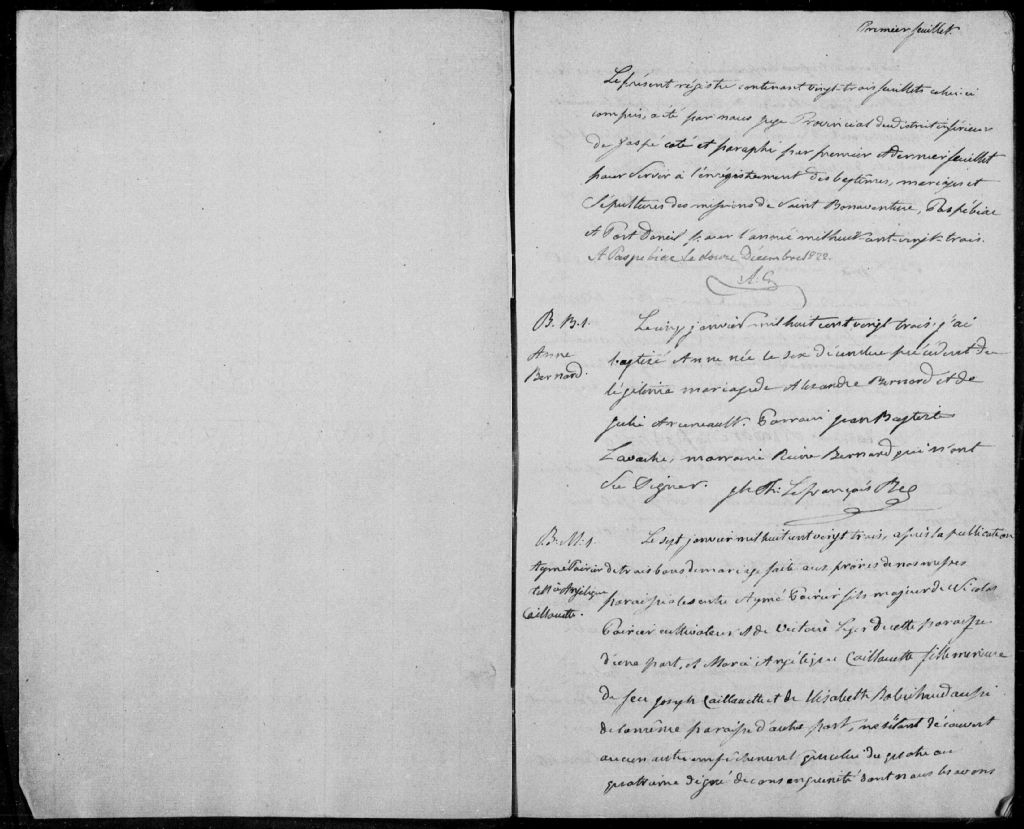 Premier feuillet.
Le présent régistre contenant vingt-trois feuillets celui-ci
compris, a été par nous juge Provincial du district inférieur
de Gaspé coté et paraphé par premier et dernier feuillet
pour servir à l'enregistrement des baptêmes, mariages et
sépultures des missions de Saint Bonaventure, Paspébiac
et Port Daniel pour l'année mil huit cent vingt-trois.
A Paspebiac le douze Décembre 1822.
B. B. 1.
Anne
Bernard.
Le cinq janvier mil huit cent vingt trois, j'ai
baptisé Anne née le six décembre précédent du
légitime mariage de Alexandre Bernard et de
Julie Arseneault. Parrain Jean Baptiste
Lavache, marraine Reine Bernard qui n'ont
su signer. Lefrançois
B. M. 1.
Aymé Poirier
et Angélique
Caillouette.
Le sept janvier mil huit cent vingt trois, après la publication
de trois bans de mariage faite aux prônes de nos messes
paroissiales entre Aymé Poirier fils majeur de Nicolas
Poirier cultivateur et de Victoire de cette paroisse
d'une part, et Marie Angélique Caillouette fille mineure
de feu Joseph Caillouette et de Elisabeth Robichaud aussi
de la même paroisse d'autre part, ne s'étant découvert
aucun autre empêchement que celui du quatre au
quatrième dégré de consanguinité dont nous les avons